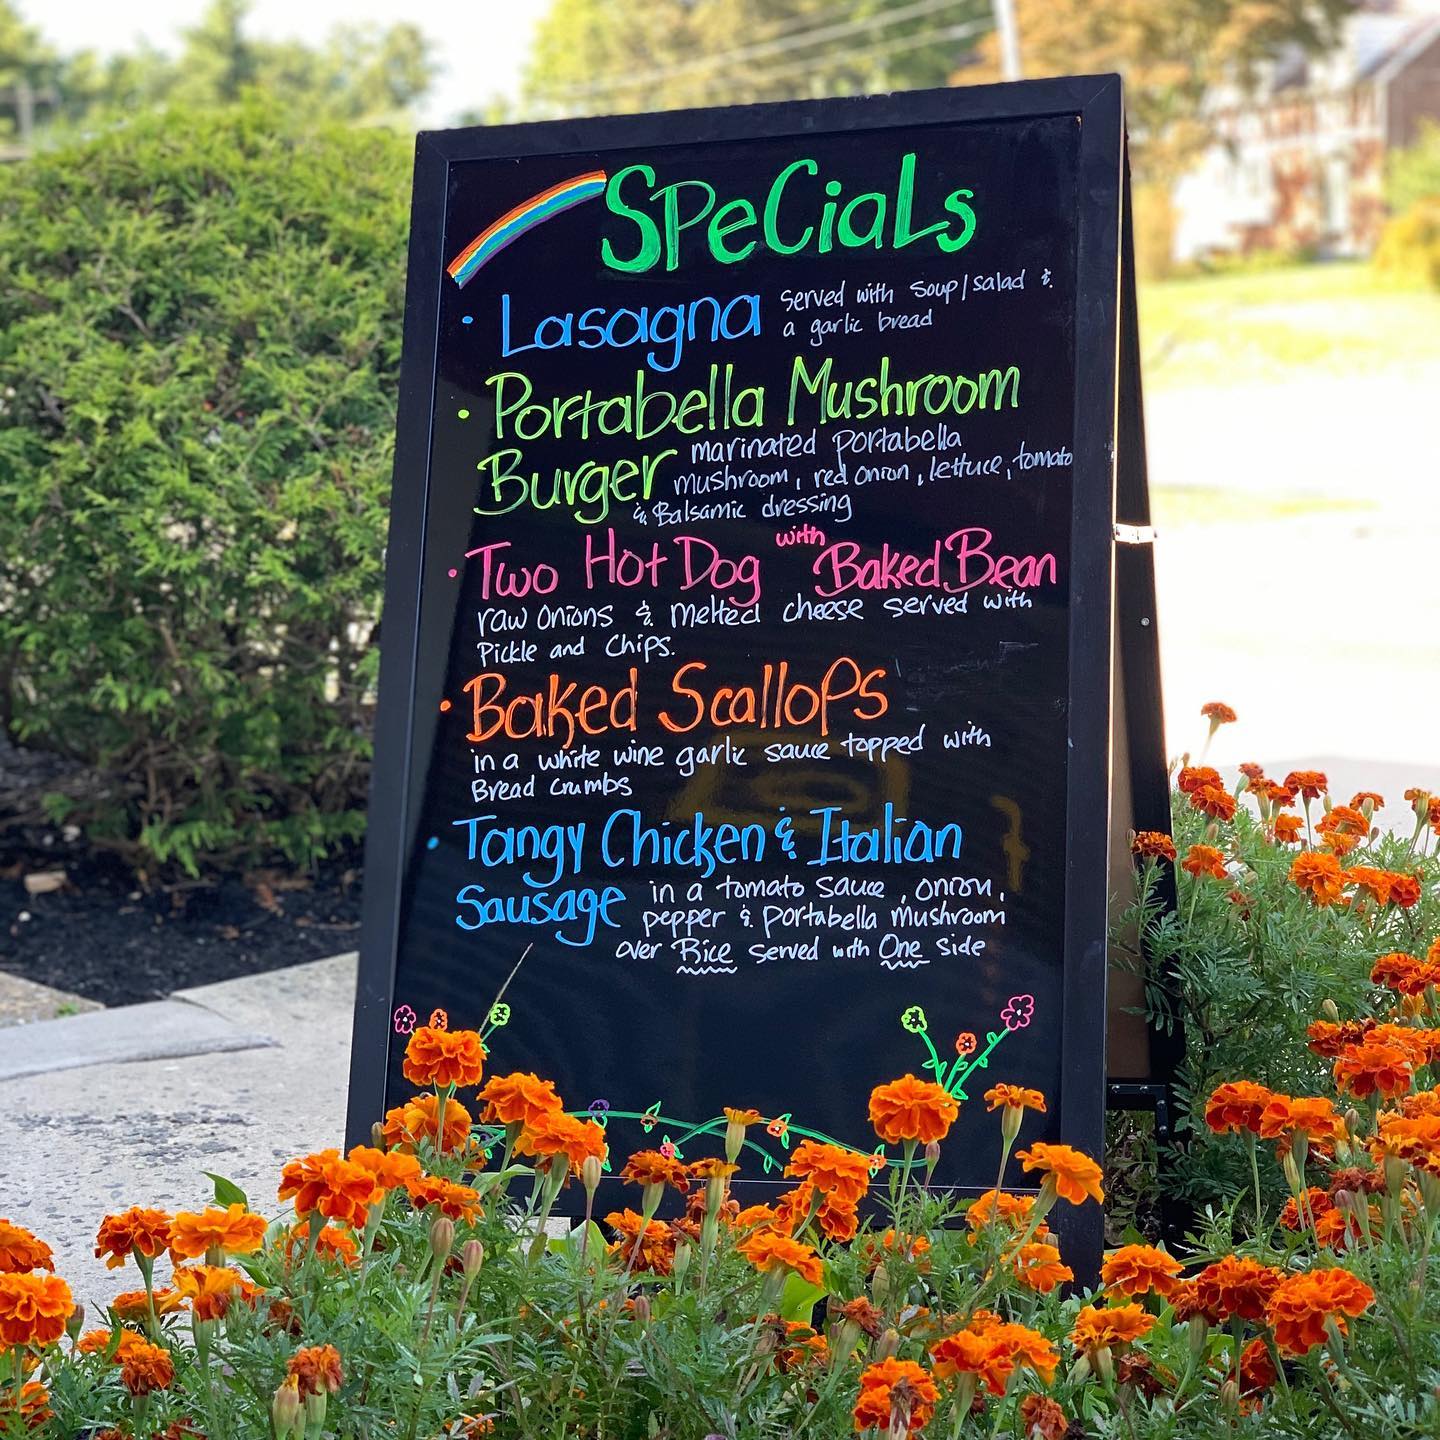 SPeCiaLs
• Lasagna served with soup/salad &
a garlic bread
• Portabella Mushroom
Burger marinated portabella
mushroom, red onion, lettuce, tomato
& Balsamic dressing
• Two Hot Dog with Baked Bean
raw onions & Melted cheese served with
Pickle and Chips.
• Baked Scallops
in a white wine garlic sauce topped with
Bread crumbs
• Tangy Chicken & Italian
Sausage in a tomato sauce, onion,
pepper & portabella mushroom
over Rice served with One side